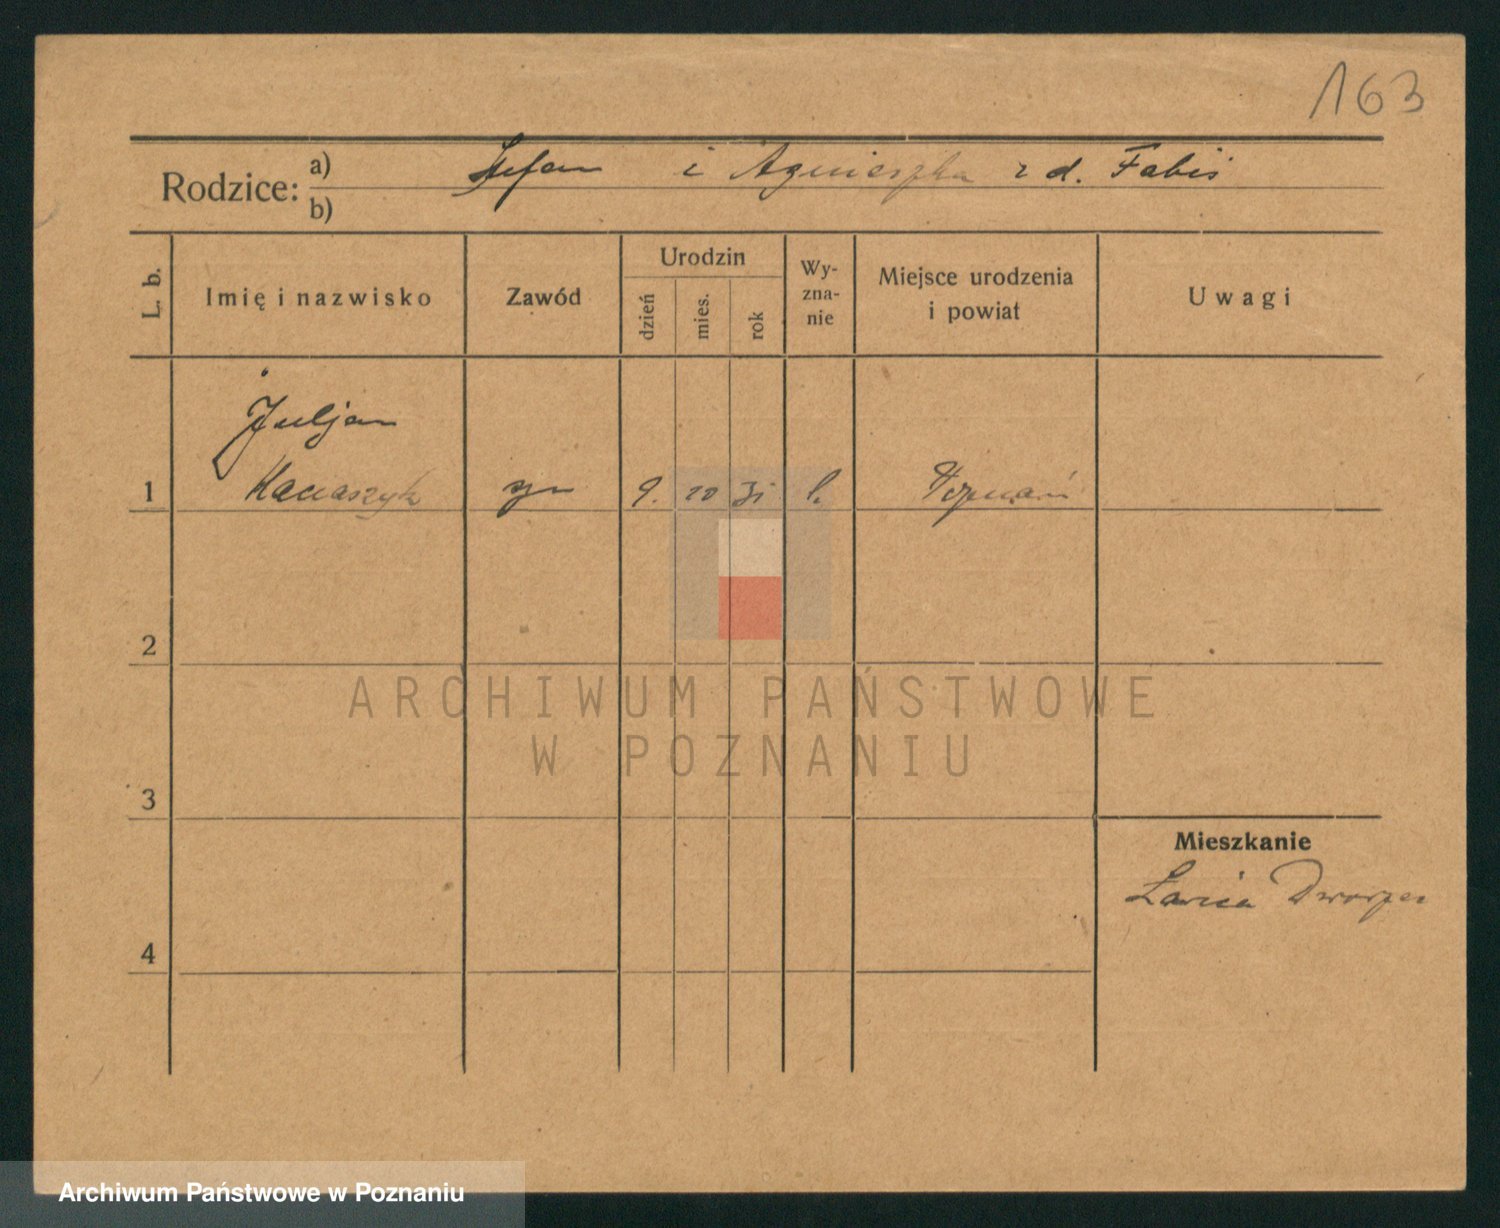 163
Rodzice: a) Stefan i Agnieszka z d. Fabiś
b)
L. b.
Imię i nazwisko
Zawód
Urodzin
dzień
mies.
rok
Wy-
zna-
nie
Miejsce urodzenia
i powiat
Uwagi
Juljan
1 syn 9. 10 31 Poznań
2
3
4
Mieszkanie
Ławica
ARCHIWUM PAŃSTWOWE
W POZNANIU
Archiwum Państwowe w Poznaniu